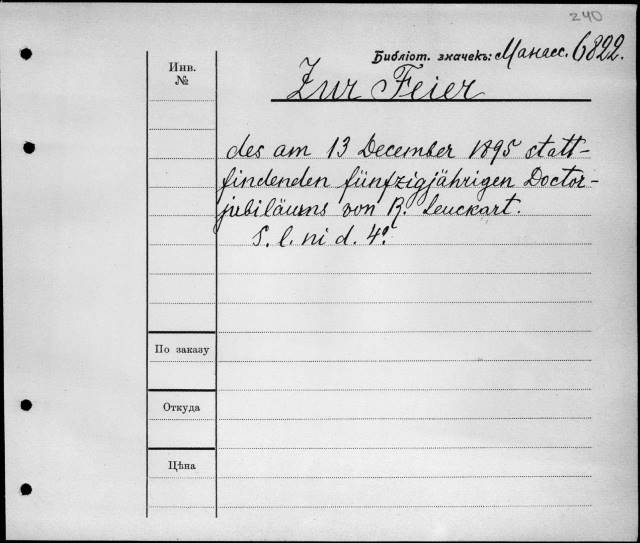 240
Библіот. значекъ: Манасс. 6822.
Инв.
№
Zur Feier
des am 13 December 1895 statt-
findenden fünfzigjährigen Doctor-
jubiläums von R. Leuckart.
S. l. ni d. 4º.
По заказу
Откуда
Цѣна